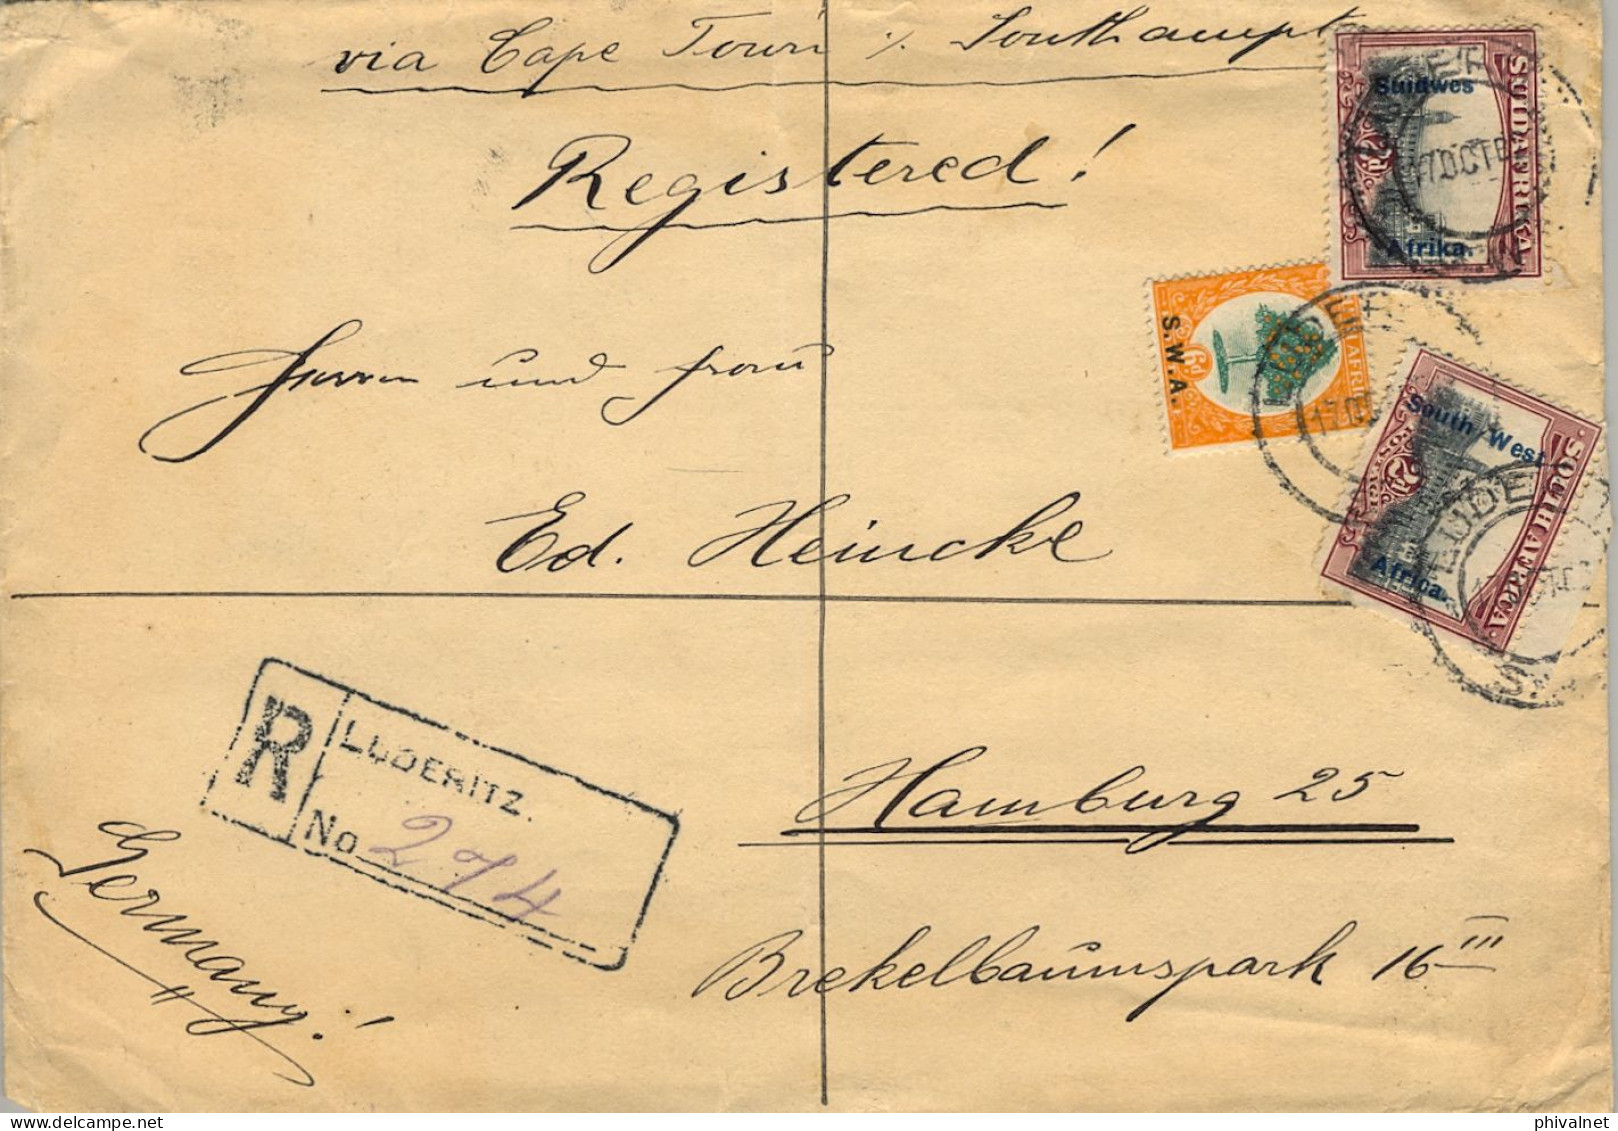 via Cape Town / Southampt
Registered!
Herrn und Frau
Ed. Heincke
Hamburg 25
Brekelbaumspark 16 III
Germany!
R LUDERITZ.
No 274
Suidwes
Afrika.
SUIDAFRIKA
2d
17 OCT
S.W.A.
6d
South West
Africa.
SOUTH AFRICA
2d
phivalnet